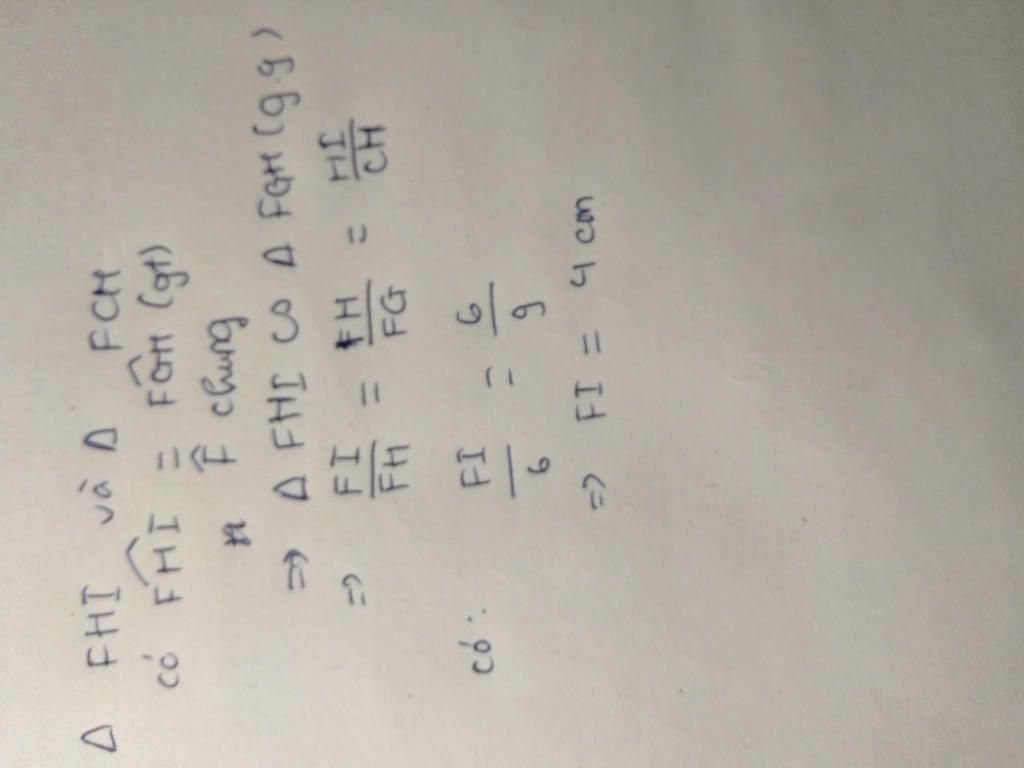 Δ FHI và Δ FGH
có FHI = FGH (gt)
F chung
=> Δ FHI ∽ Δ FGH (g.g)
=> FI/FH = FH/FG = HI/GH
có: FI/6 = 6/9
=> FI = 4 cm